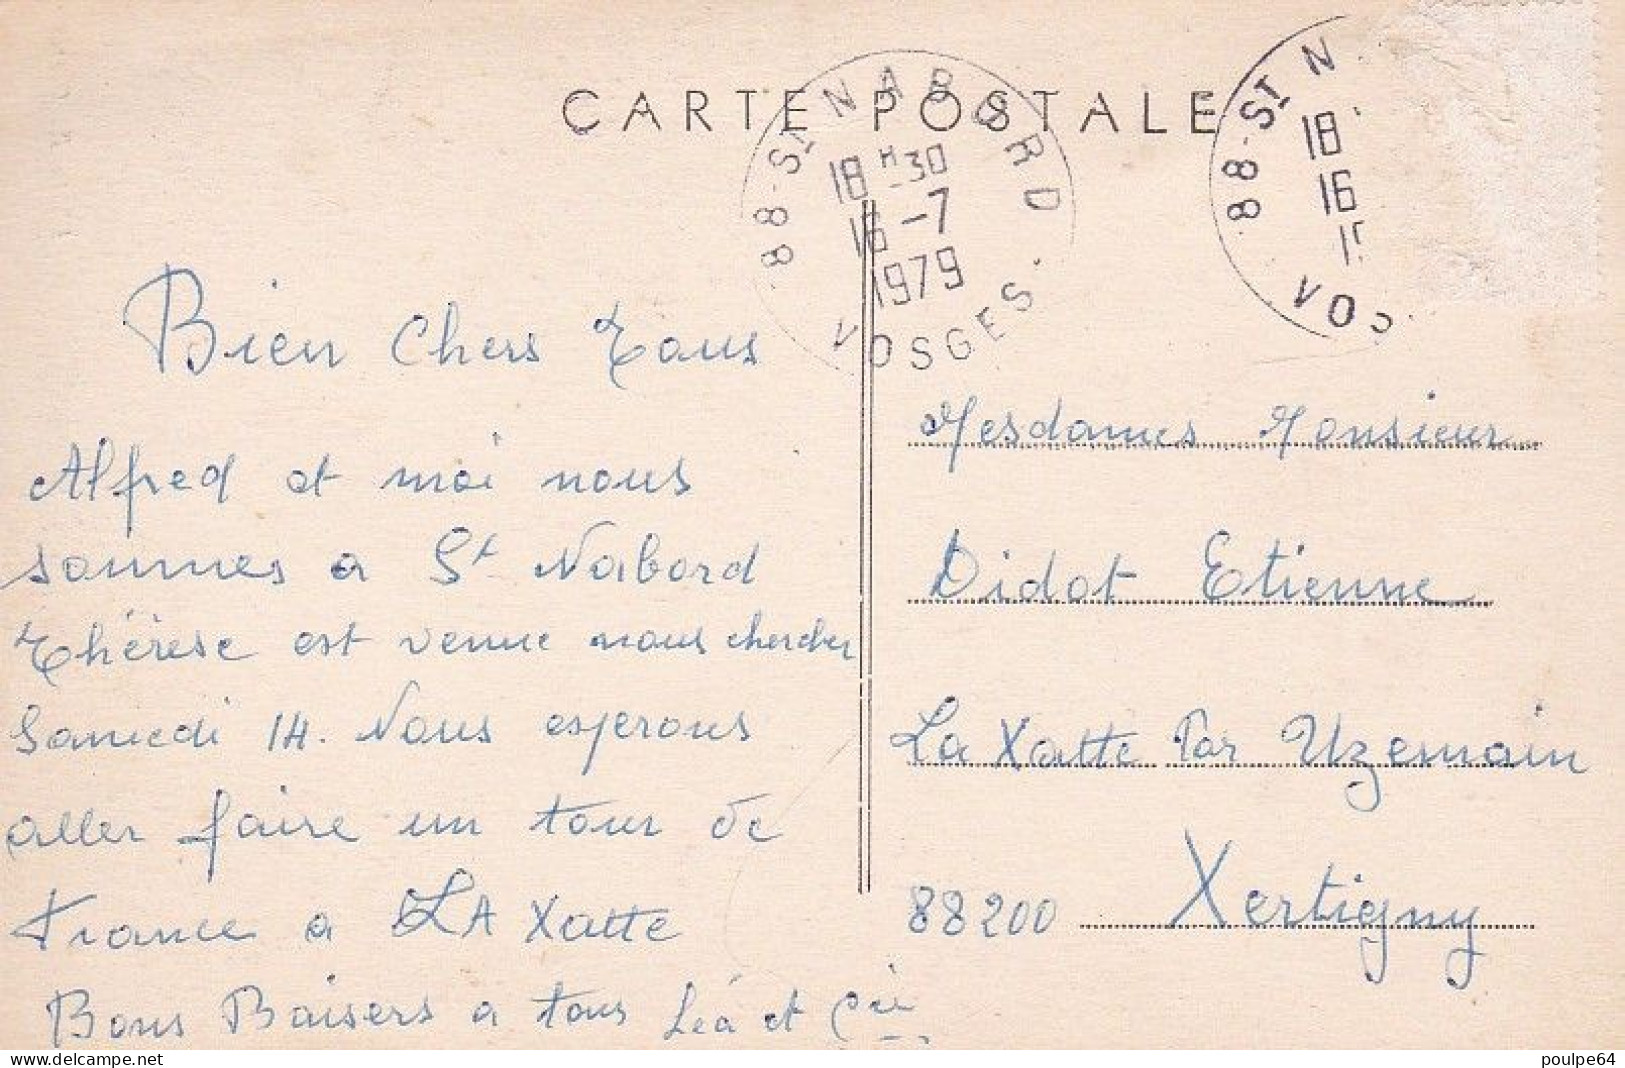 CARTE POSTALE
88-ST NABORD
18H30
16-7
1979
VOSGES
88-ST N
18
16
VOS
Bien Chers Tous
Alfred et moi nous
sommes a St Nabord
Thérèse est venue nous chercher
Samedi 14. Nous esperons
aller faire un tour de
France a LA Xatte
Bons Baisers a tous Léa et Cie
Mesdames Monsieur
Didot Etienne
La Xatte Par Uzemain
88200 Xertigny
www.delcampe.net
poulpe64